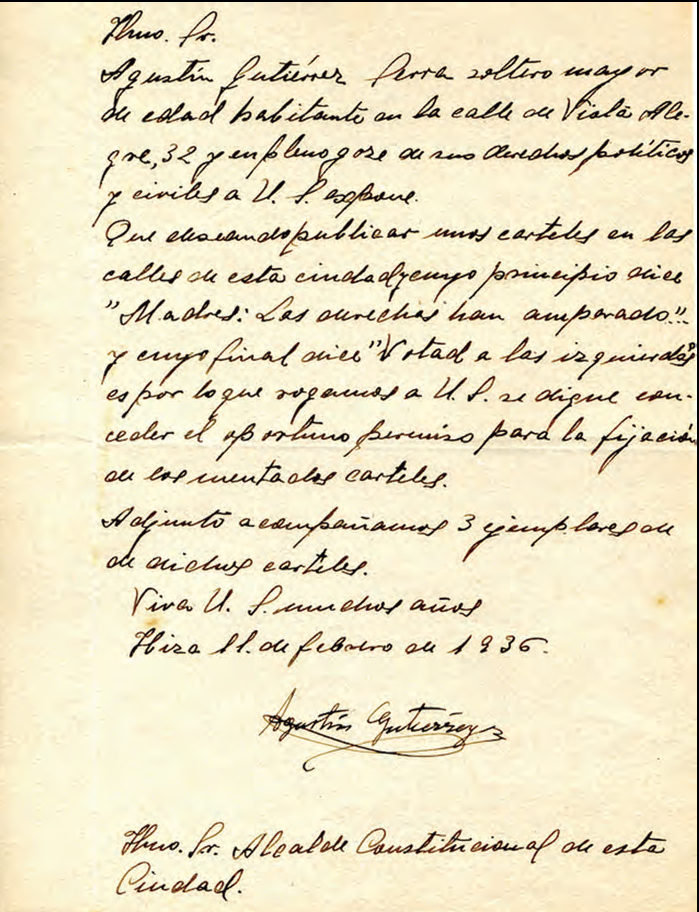 Ilmo. Sr.
Agustín Gutiérrez Serra soltero mayor
de edad habitante en la calle de Vista Ale-
gre, 32 y en pleno goze de sus derechos políticos
y civiles a U. S. expone.
Que deseando publicar unos carteles en las
calles de esta ciudad y cuyo principio dice
"Madres: Las derechas han amparado"...
y cuyo final dice "Votad a las izquierdas"
es por lo que rogamos a U. S. se digne con-
ceder el oportuno permiso para la fijación
de los mentados carteles.
Adjunto acompañamos 3 ejemplares de
de dichos carteles.
Viva U. S. muchos años
Ibiza 11 de febrero de 1936.
Agustín Gutiérrez
Ilmo. Sr. Alcalde Constitucional de esta
Ciudad.